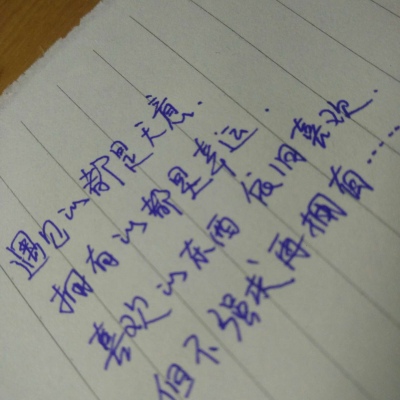 遇见的都是天意.
拥有的都是幸运.
喜欢的东西 依旧喜欢.
但不强求再拥有……